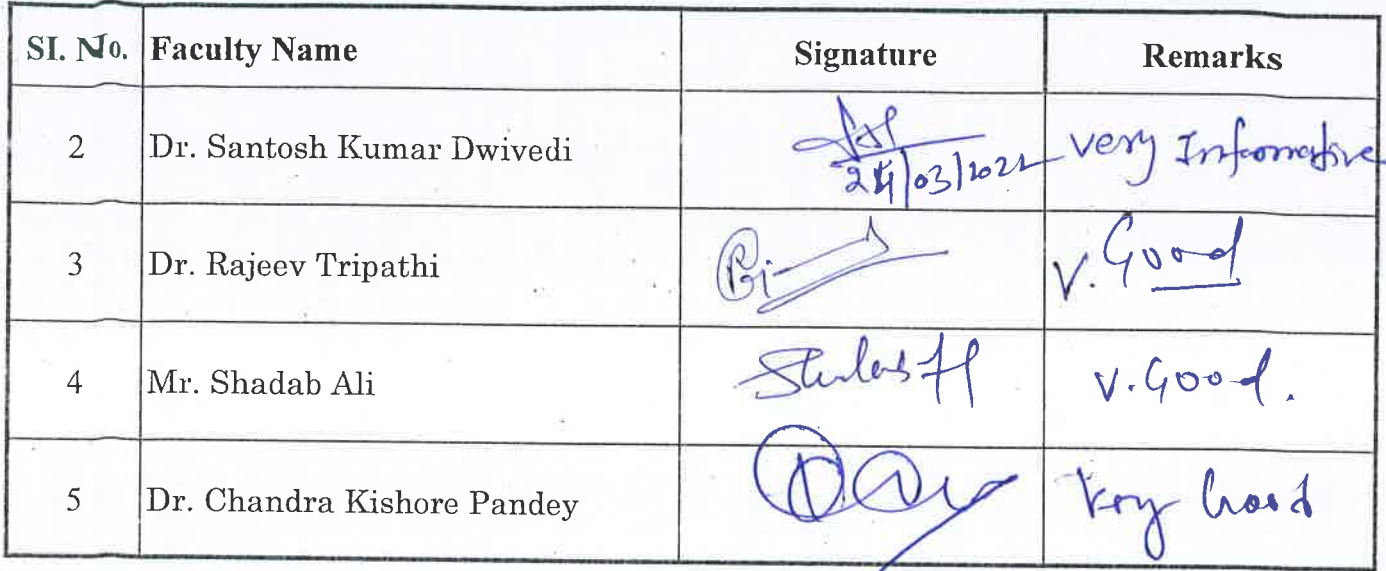 SI. No. Faculty Name Signature Remarks
2 Dr. Santosh Kumar Dwivedi 24/03/2022 Very Informative
3 Dr. Rajeev Tripathi V. Good
4 Mr. Shadab Ali V. Good.
5 Dr. Chandra Kishore Pandey Very Good